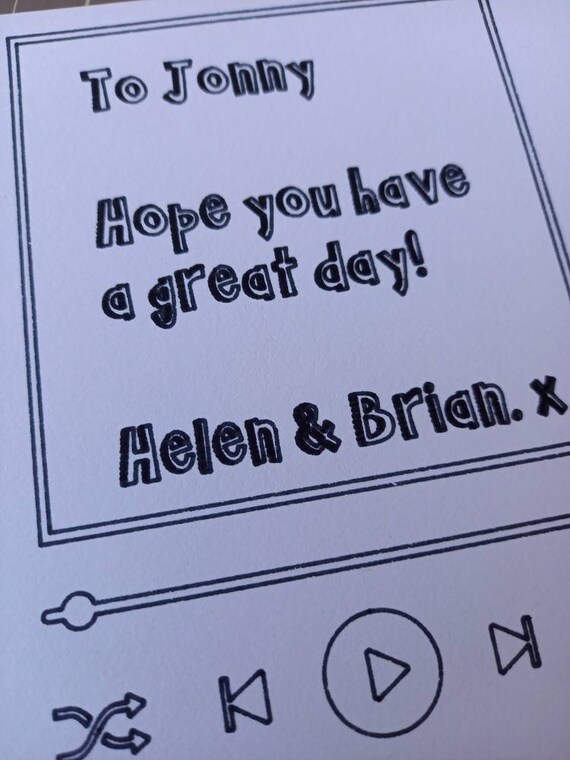 To Jonny
Hope you have
a great day!
Helen & Brian. x